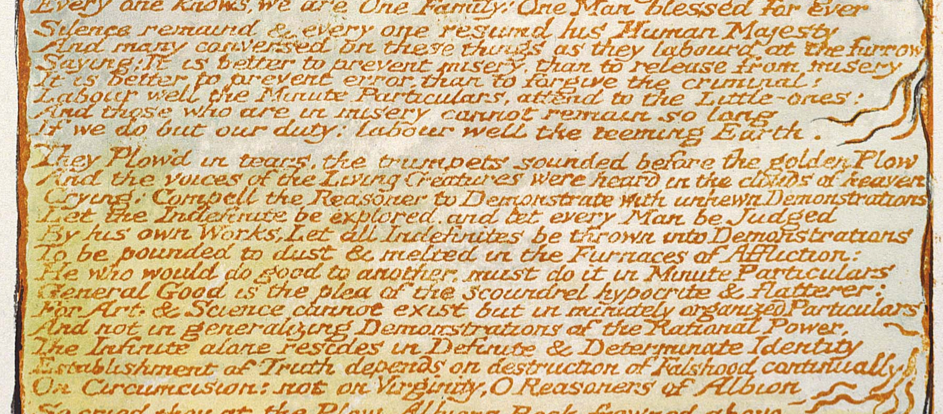 Every one knows, we are One Family: One Man blessed for ever
Silence remaind & every one resumd his Human Majesty
And many conversed on these things as they labourd at the furrow
Saying: It is better to prevent misery, than to release from misery
It is better to prevent error, than to forgive the criminal:
Labour well the Minute Particulars, attend to the Little-ones:
And those who are in misery cannot remain so long
If we do but our duty: labour well the teeming Earth.
They Plow'd in tears, the trumpets sounded before the golden Plow
And the voices of the Living Creatures were heard in the clouds of heaven
Crying: Compell the Reasoner to Demonstrate with unhewn Demonstrations
Let the Indefinite be explored, and let every Man be Judged
By his own Works, Let all Indefinites be thrown into Demonstrations
To be pounded to dust & melted in the Furnaces of Affliction:
He who would do good to another, must do it in Minute Particulars
General Good is the plea of the scoundrel hypocrite & flatterer:
For Art & Science cannot exist but in minutely organized Particulars
And not in generalizing Demonstrations of the Rational Power,
The Infinite alone resides in Definite & Determinate Identity
Establishment of Truth depends on destruction of Falshood continually
On Circumcision: not on Virginity, O Reasoners of Albion
So cried they at the Plow. Albions Rock frowned above